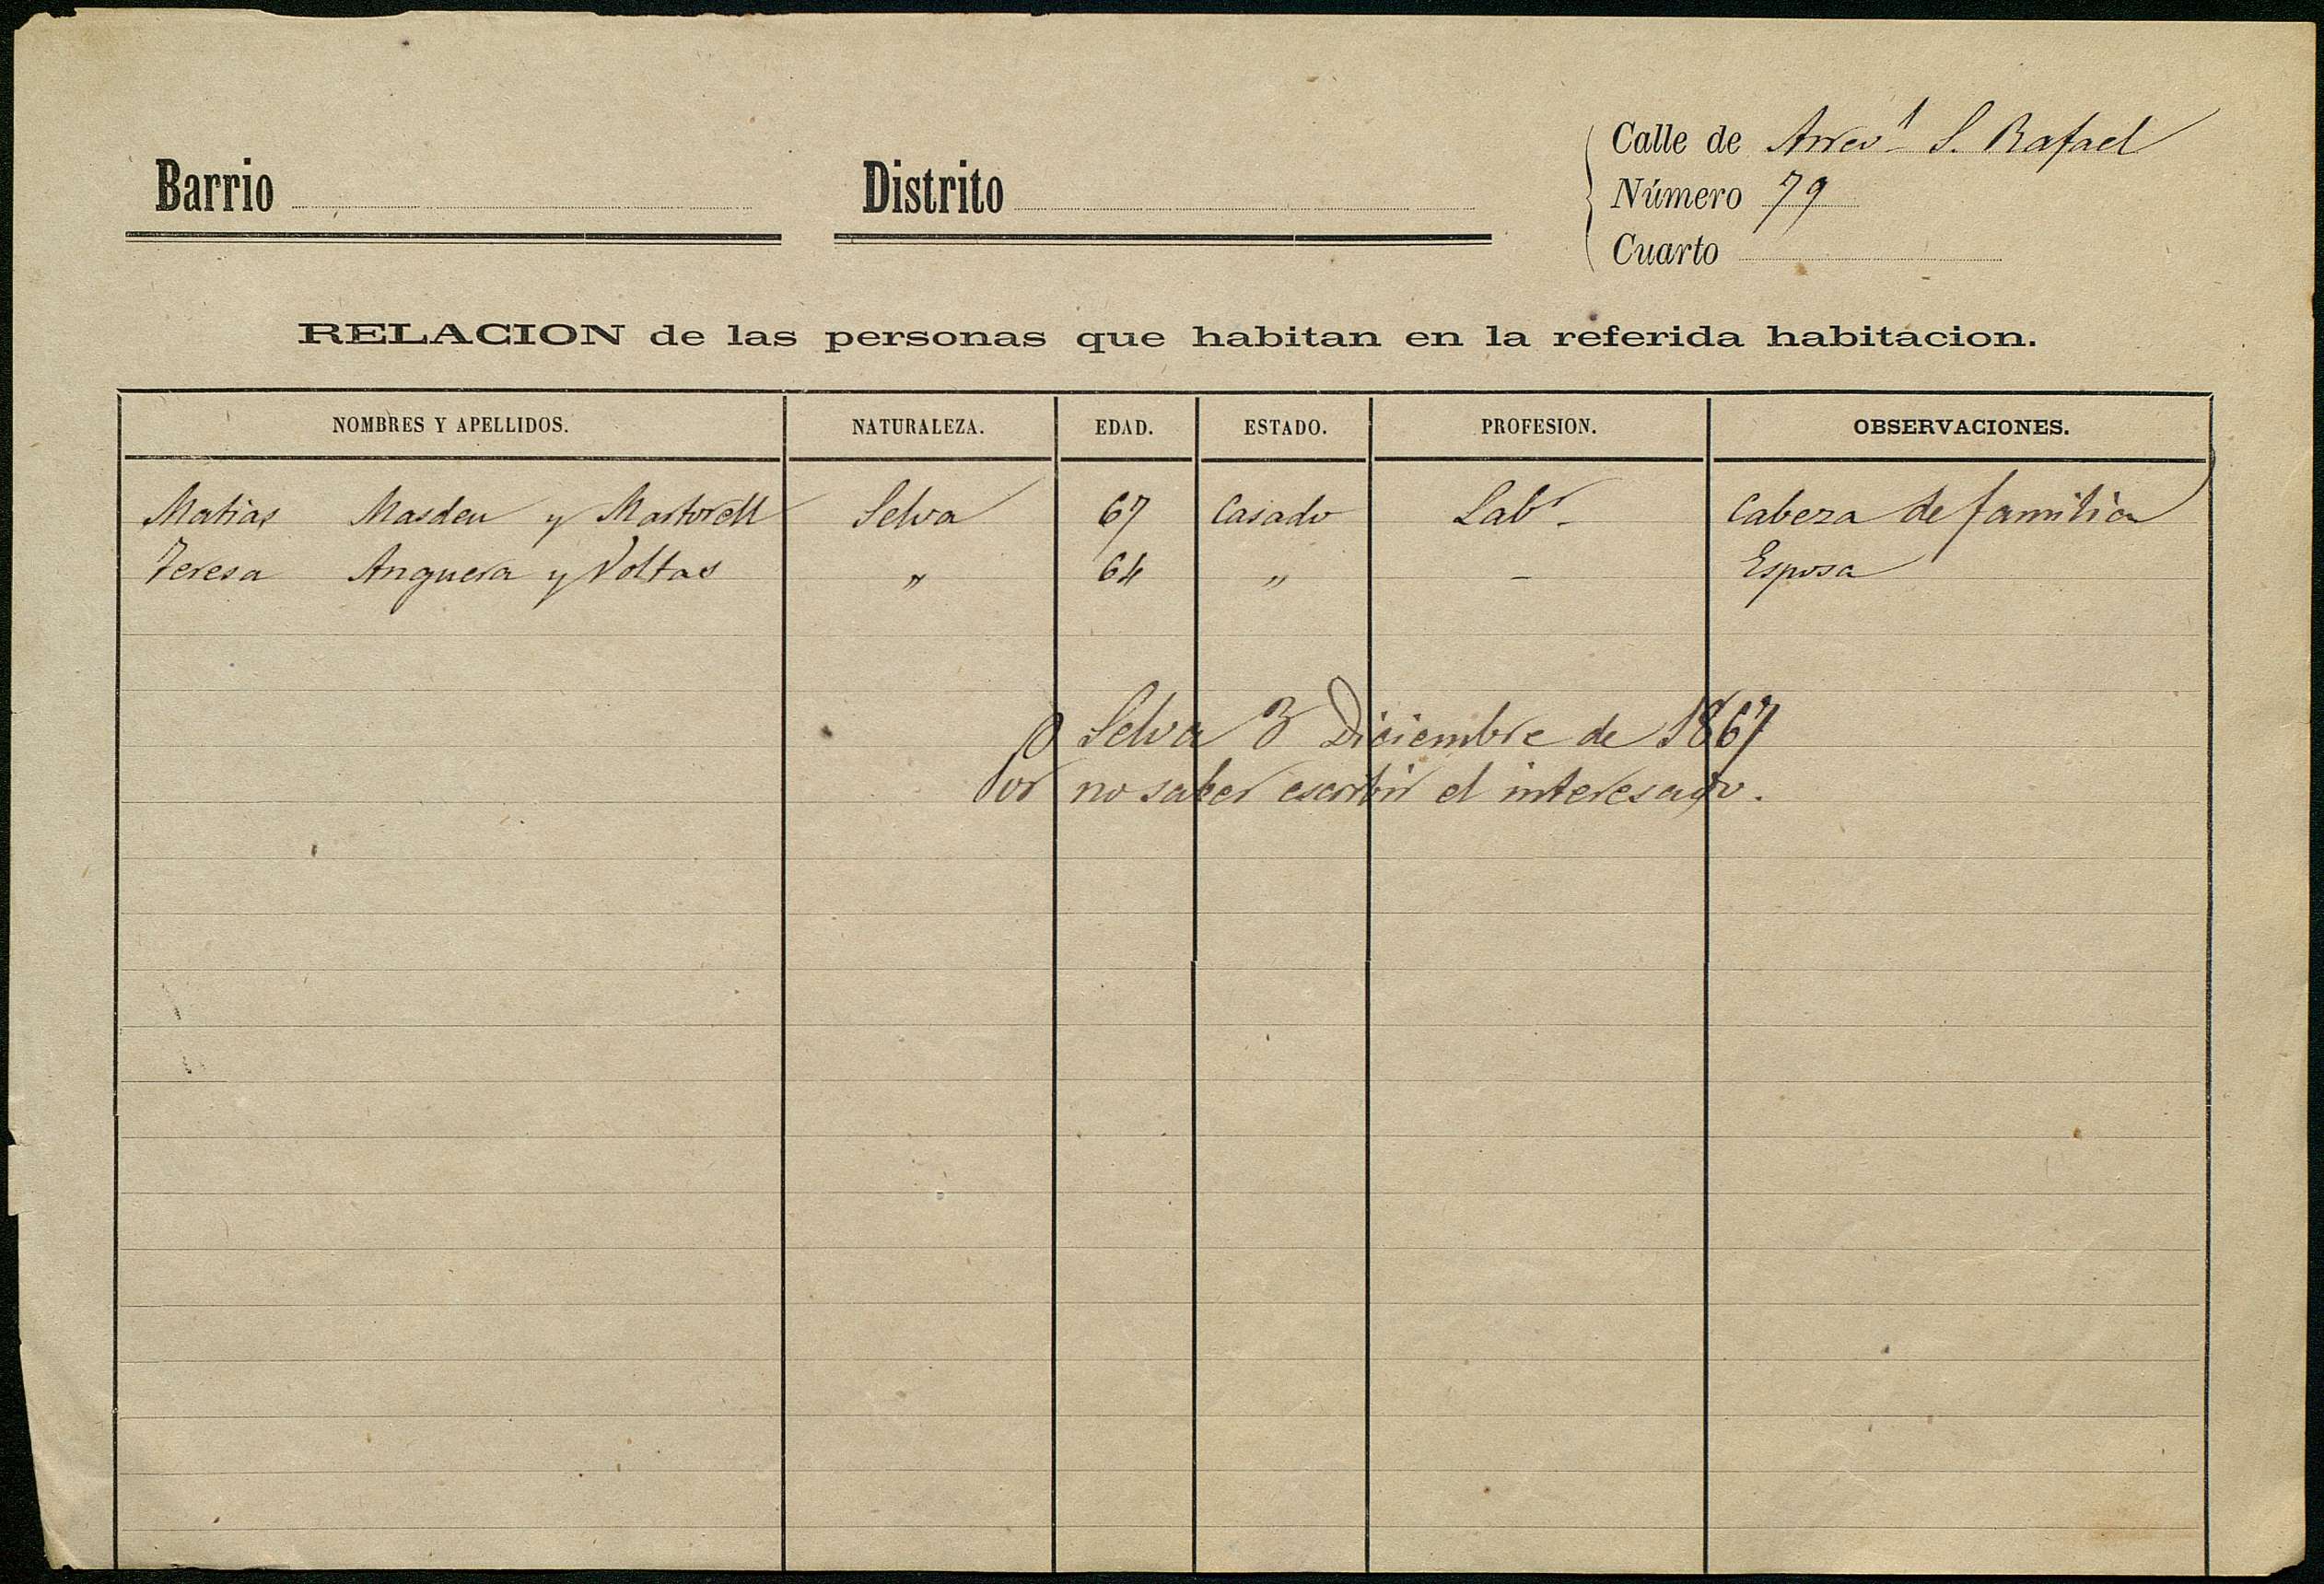 Barrio
Distrito
Calle de Arral S. Rafael
Número 79
Cuarto
RELACION de las personas que habitan en la referida habitacion.
NOMBRES Y APELLIDOS. NATURALEZA. EDAD. ESTADO. PROFESION. OBSERVACIONES.
Matias Masdeu y Martorell Selva 67 Casado Labr. Cabeza de familia
Teresa Anguera y Voltas " 64 " - Esposa
Selva 3 Diciembre de 1867
Por no saber escribir el interesado.